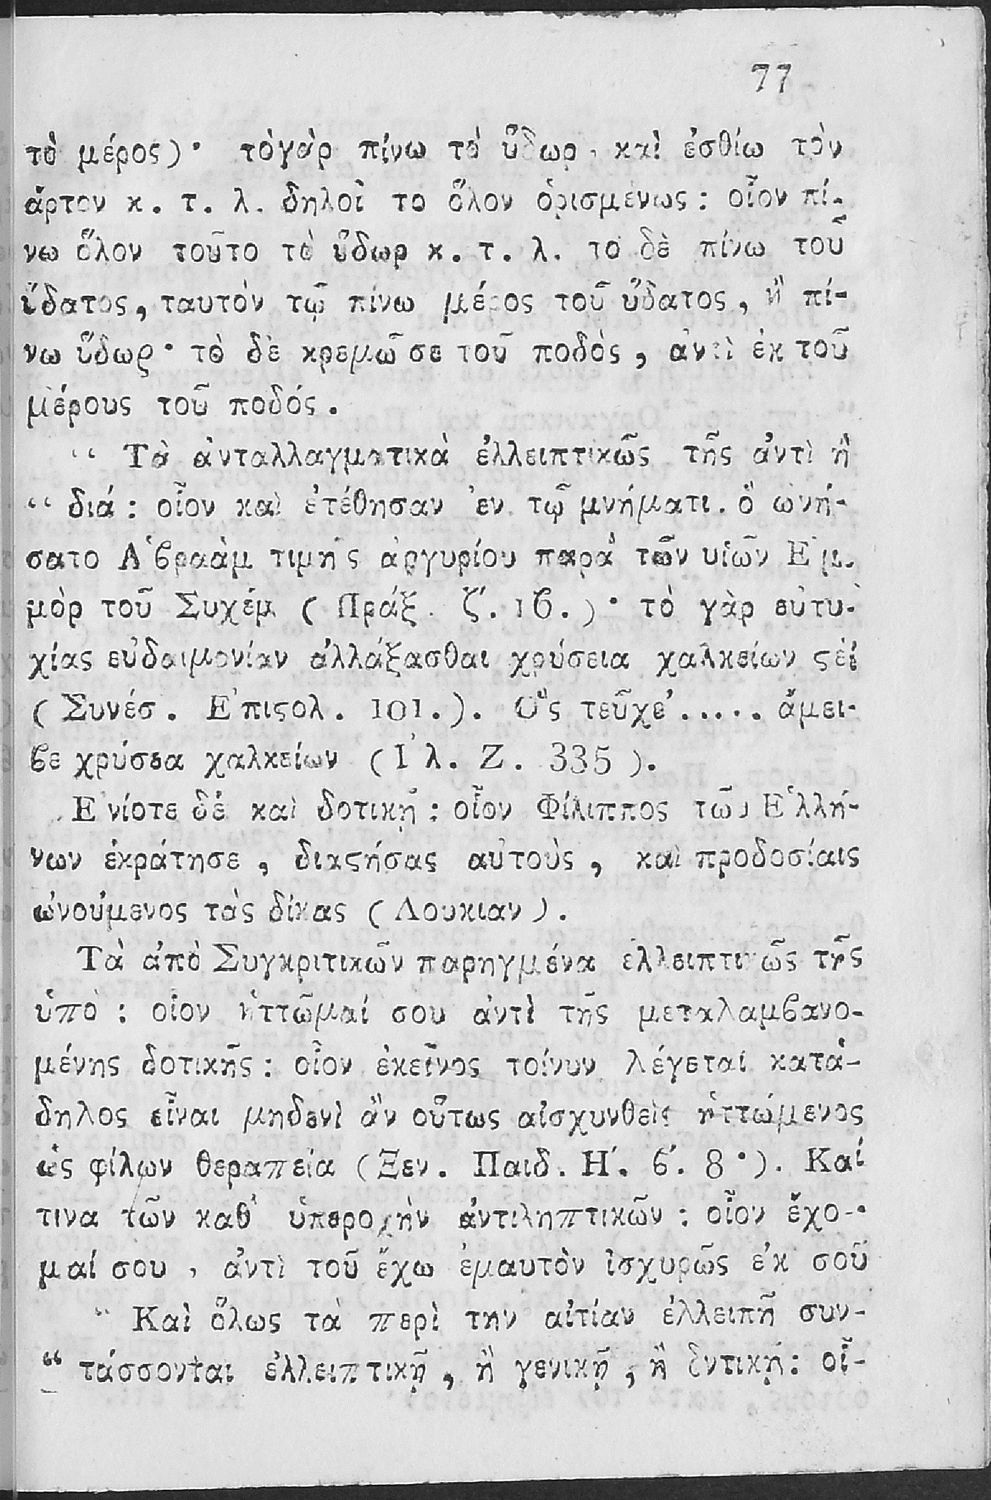 77
τὸ μέρος)· τὸγὰρ πίνω τὸ ὕδωρ, καὶ ἐσθίω τὸν
ἄρτον κ. τ. λ. δηλοῖ το ὅλον ὁρισμένως: οἷον πί-
νω ὅλον τοῦτο τὸ ὕδωρ κ. τ. λ. το δὲ πίνω τοῦ
ὕδατος, ταυτόν τῷ πίνω μέρος τοῦ ὕδατος, ἢ πί-
νω ὕδωρ· τὸ δὲ κρεμῶ σε τοῦ ποδὸς, ἀντὶ ἐκ τοῦ
μέρους τοῦ ποδός.
“ Τὰ ἀνταλλαγματικὰ ἐλλειπτικῶς τῆς ἀντὶ ἢ
“ διά: οἷον καὶ ἐτέθησαν ἐν τῷ μνήματι. ὃ ὠνή-
σατο Ἀϐραὰμ τιμῆς ἀργυρίου παρὰ τῶν υἱῶν Ἐμ-
μὸρ τοῦ Συχέμ (Πράξ. ζ΄. 16.)· τὸ γὰρ εὐτυ-
χίας εὐδαιμονίαν ἀλλάξασθαι χρύσεια χαλκείων ϛεί
(Συνέσ. Ἐπιϛολ. 101.). Ὅς τεῦχε’..... ἄμει-
ϐε χρύσεα χαλκείων (Ἰλ. Ζ. 335).
Ἐνίοτε δὲ καὶ δοτικῇ: οἷον Φίλιππος τῶν Ἑλλή-
νων ἐκράτησε, διαϛήσας αὐτοὺς, καὶ προδοσίαις
ὠνούμενος τὰς δίκας (Λουκιαν).
Τὰ ἀπὸ Συγκριτικῶν παρηγμένα ἐλλειπτικῶς τῆς
ὑπὸ: οἷον ἡττῶμαί σου ἀντὶ τῆς μεταλαμϐανο-
μένης δοτικῆς: οἷον ἐκεῖνος τοίνυν λέγεται κατά-
δηλος εἶναι μηδενὶ ἂν οὕτως αἰσχυνθεὶς ἡττώμενος
ὡς φίλων θεραπεία (Ξεν. Παιδ. Η΄. ϐ΄. 8·). Καί
τινα τῶν καθ’ ὑπεροχὴν ἀντιληπτικῶν: οἷον ἔχο-
μαί σου, ἀντὶ τοῦ ἔχω ἐμαυτὸν ἰσχυρῶς ἐκ σοῦ
“ Καὶ ὅλως τὰ περὶ την αἰτίαν ἐλλειπῆ συν-
“ τάσσονται ἐλλειπτικῇ, ἢ γενικῇ, ἢ δντικῇ: οἷ-